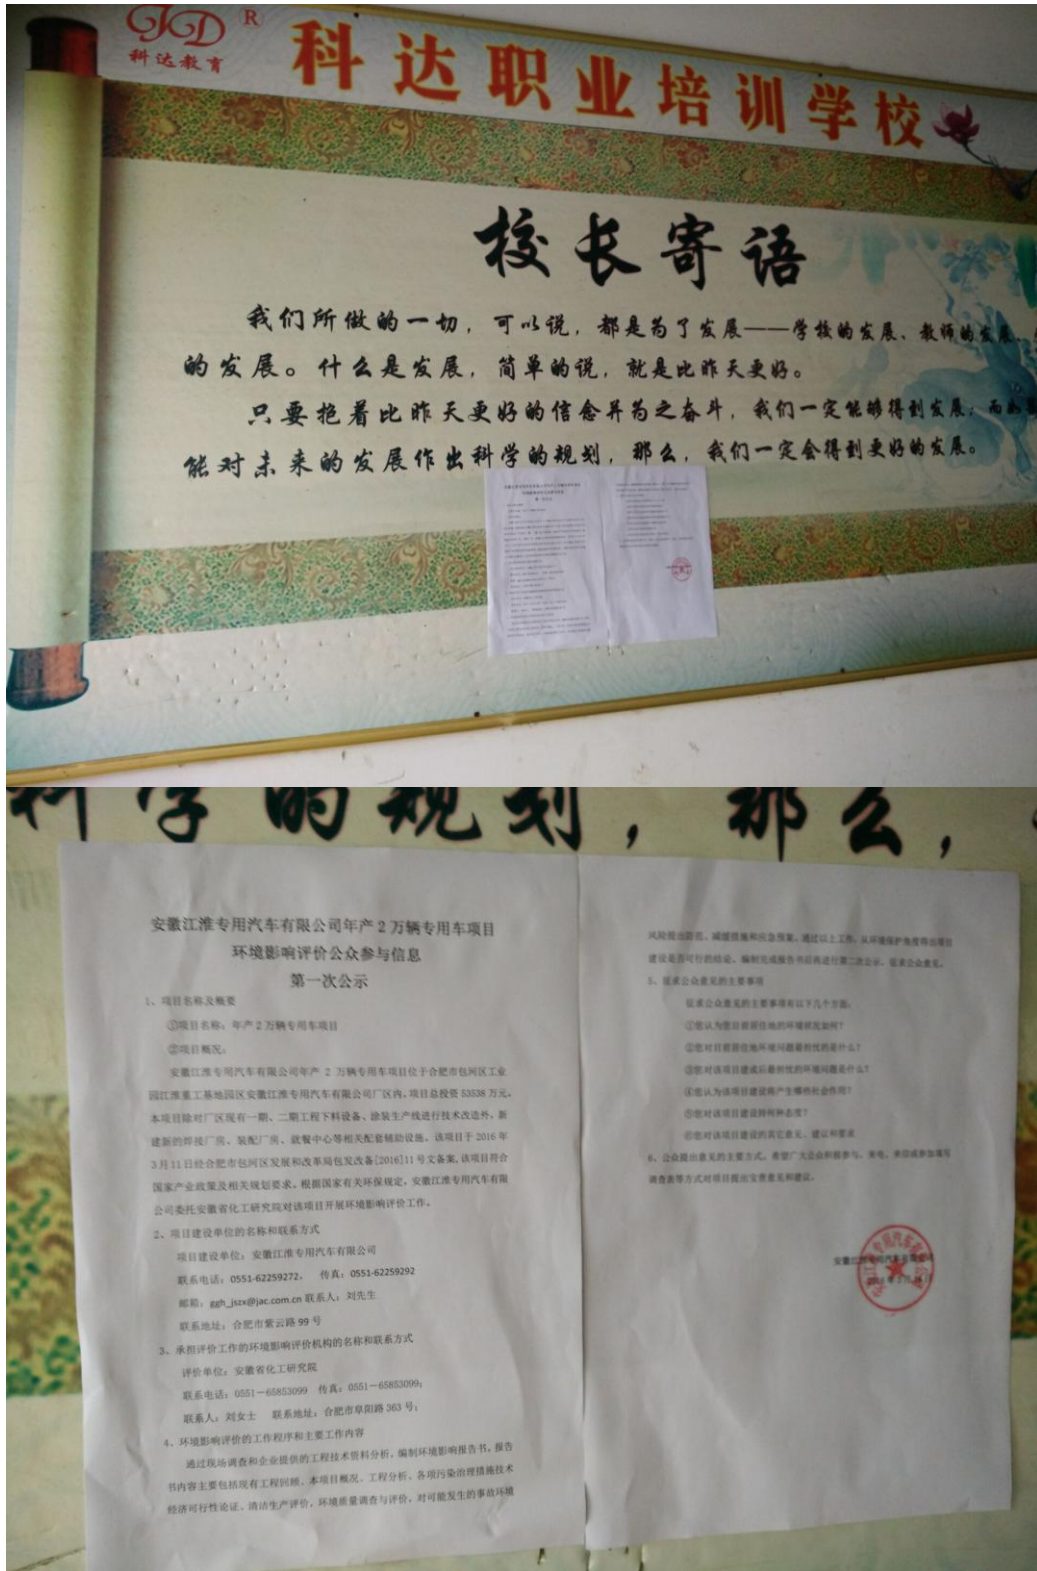 JD®
科达教育
科达职业培训学校
校长寄语
我们所做的一切，可以说，都是为了发展——学校的发展、教师的发展、
的发展。什么是发展，简单的说，就是比昨天更好。
只要抱着比昨天更好的信念并为之奋斗，我们一定能够得到发展；而如
能对未来的发展作出科学的规划，那么，我们一定会得到更好的发展。
科学的规划，那么，
安徽江淮专用汽车有限公司年产2万辆专用车项目
环境影响评价公众参与信息
第一次公示
1、项目名称及概要
①项目名称：年产2万辆专用车项目
②项目概况：
安徽江淮专用汽车有限公司年产 2 万辆专用车项目位于合肥市包河区工业
园江淮重工基地园区安徽江淮专用汽车有限公司厂区内。项目总投资53538万元。
本项目除对厂区现有一期、二期工程下料设备、涂装生产线进行技术改造外，新
建新的焊接厂房、装配厂房、就餐中心等相关配套辅助设施。该项目于2016年
3月11日经合肥市包河区发展和改革局包发改备[2016]11号文备案，该项目符合
国家产业政策及相关规划要求。根据国家有关环保规定，安徽江淮专用汽车有限
公司委托安徽省化工研究院对该项目开展环境影响评价工作。
2、项目建设单位的名称和联系方式
项目建设单位：安徽江淮专用汽车有限公司
联系电话：0551-62259272， 传真：0551-62259292
邮箱：ggh_jszx@jac.com.cn 联系人：刘先生
联系地址：合肥市紫云路99号
3、承担评价工作的环境影响评价机构的名称和联系方式
评价单位：安徽省化工研究院
联系电话：0551－65853099 传真：0551－65853099；
联系人：刘女士 联系地址：合肥市阜阳路363号；
4、环境影响评价的工作程序和主要工作内容
通过现场调查和企业提供的工程技术资料分析，编制环境影响报告书，报告
书内容主要包括现有工程回顾、本项目概况、工程分析、各项污染治理措施技术
经济可行性论证、清洁生产评价，环境质量调查与评价，对可能发生的事故环境
风险提出防范、减缓措施和应急预案。通过以上工作，从环境保护角度得出项目
建设是否可行的结论。编制完成报告书后再进行第二次公示，征求公众意见。
5、征求公众意见的主要事项
征求公众意见的主要事项有以下几个方面：
①您认为您目前居住地的环境状况如何？
②您对目前居住地环境问题最担忧的是什么？
③您对该项目建成后最担忧的环境问题是什么？
④您认为该项目建设将产生哪些社会作用？
⑤您对该项目建设持何种态度？
⑥您对该项目建设的其它意见、建议和要求
6、公众提出意见的主要方式。希望广大公众积极参与，来电、来信或参加填写
调查表等方式对项目提出宝贵意见和建议。
安徽江淮专用汽车有限公司